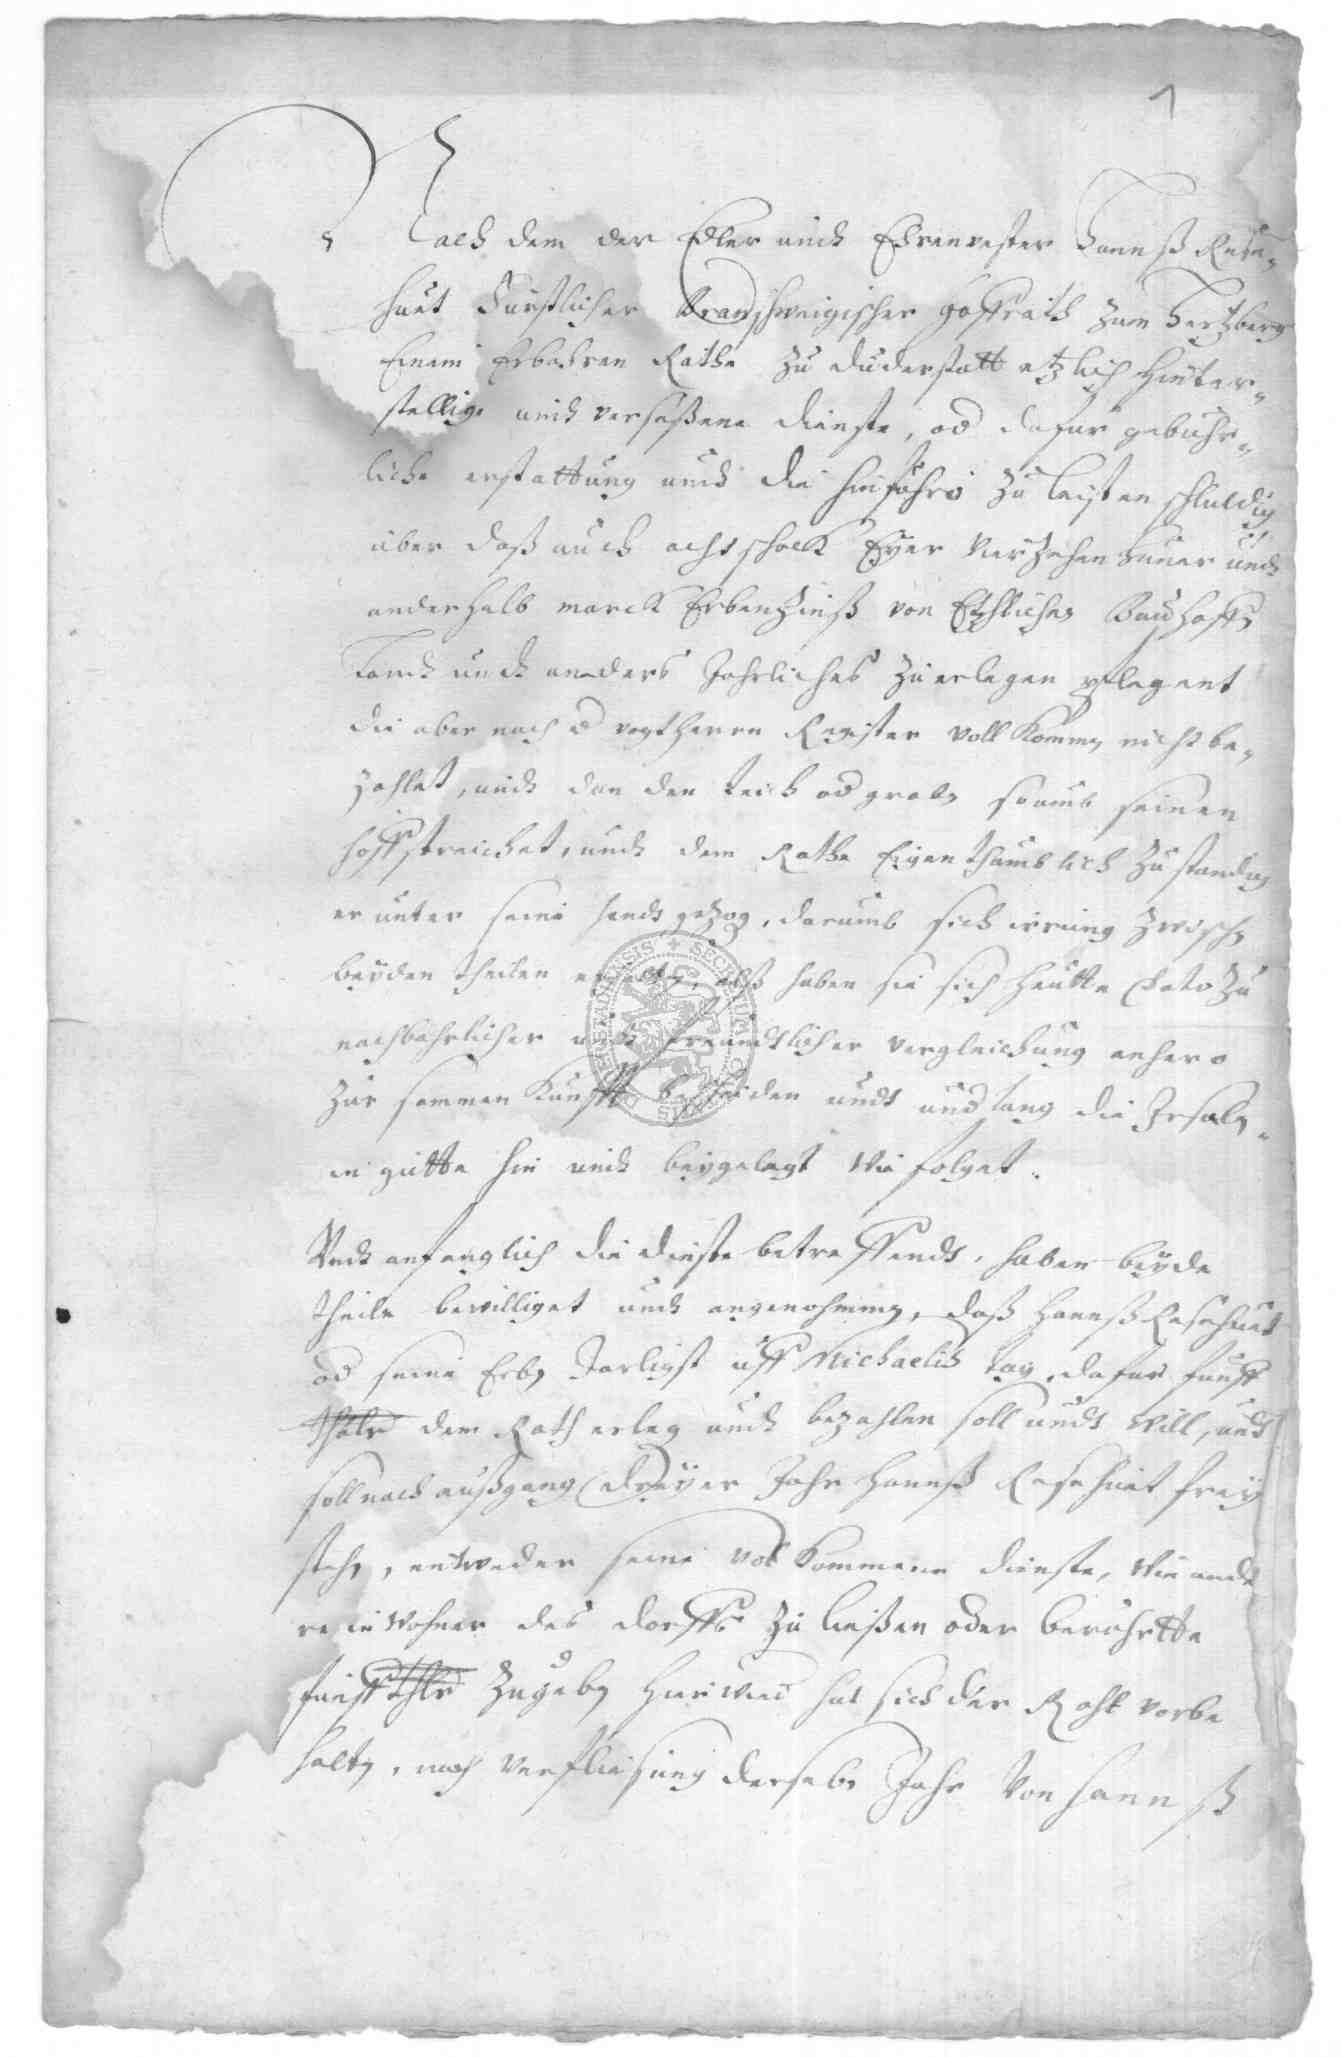 1
Nach dem der Edler undt Ehrenvester Hannß Rese„
huet Furstlicher Braunschweigischer Hoffrath zum Hertzberg
Einem Erbahren Rathe zu Duderstatt etzlich hinter„
stellige undt verseßene dienste, od dafur gebuhr„
liche erstattung undt die hinfuhro zu leisten schuldig
uber daß auch acht schock Eyer vierzehen huner undt
anderhalb marck Erbenzinß von Etzlichen Bauhoffs
Landt undt anders Jahrliches zu erlegen pflegent
die aber nach d vogtherrn Register vollkommen nicht be„
zahlet, undt dan den teich od graben so umb seinen
hoff streichet, undt dem Rathe Eigenthumblich zustendig
er unter seine handt gezog, darumb sich irrung zwischen
beyden theilen erhalten, alß haben sie sich heutte Dato zu
nachbahrlicher undt freundtlicher vergleichung anhero
zur sammen kunfft bescheiden undt die
in gutte hin undt beygelegt wie folget.
Undt anfenglich die dienste betreffendt, haben beyde
theile bewilliget undt angenohmmen, daß Hannß Resehuet
od seine Erben Jarligst uff Michaelis tag, dafur funff
thaler dem Rath erleg undt bezahlen soll undt will, undt
soll nach außgang dreyer Jahr Hannß Resehuet frey
stehen, entweder seine volkommene dienste, wie ande
re einwohner des dorffs zu leisten oder beruhrtte
funff thlr zugeben hierwied hat sich der Raht vorbe
halten, nach verfliesung derselben Jahr von Hannß
SECRETUM